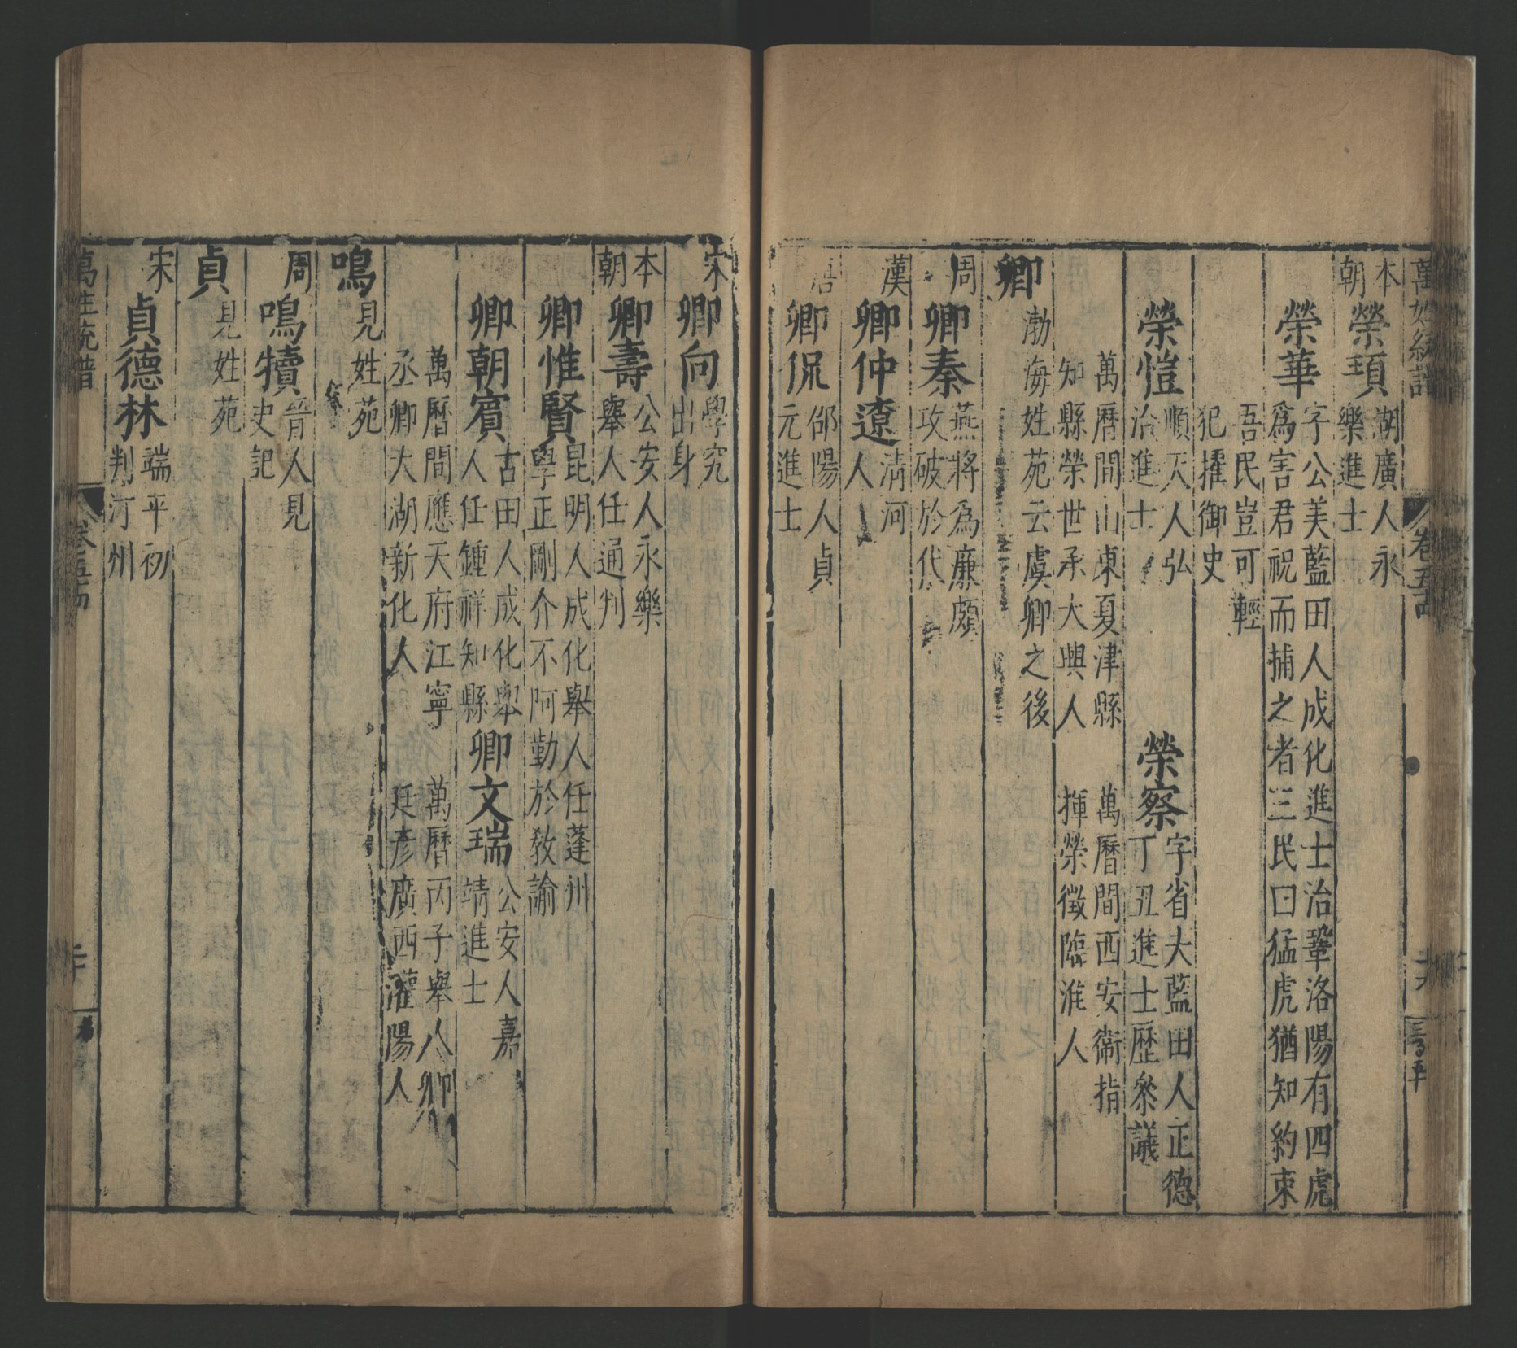 萬姓統譜 卷五十四
本朝 榮頊 湖廣人永樂進士
榮華 字公美藍田人成化進士治鞏洛陽有四虎爲害君祝而捕之者三民曰猛虎猶知約束
吾民豈可輕犯擢御史
榮愷 順天人弘治進士 榮察 字省大藍田人正德丁丑進士歷叅議
萬曆間山東夏津縣知縣榮世承大興人 萬曆間西安衛指揮榮徵臨淮人
卿 渤海姓苑云虞卿之後
周 卿秦 燕將爲廉頗攻破於代
漢 卿仲遼 清河人
唐 卿侃 郃陽人貞元進士
宋 卿向 學究出身
本朝 卿壽 公安人永樂舉人任通判
卿惟賢 昆明人成化舉人任蓬州學正剛介不阿勤於敎諭
卿朝賓 古田人成化舉人任鍾祥知縣 卿文瑞 公安人嘉靖進士
萬曆間應天府江寧丞卿大湖新化人 萬曆丙子舉人卿廷彥廣西灌陽人
鳴 見姓苑
周 鳴犢 晉人見史記
貞 見姓苑
宋 貞德林 端平初判河州
萬姓統譜 卷五十四